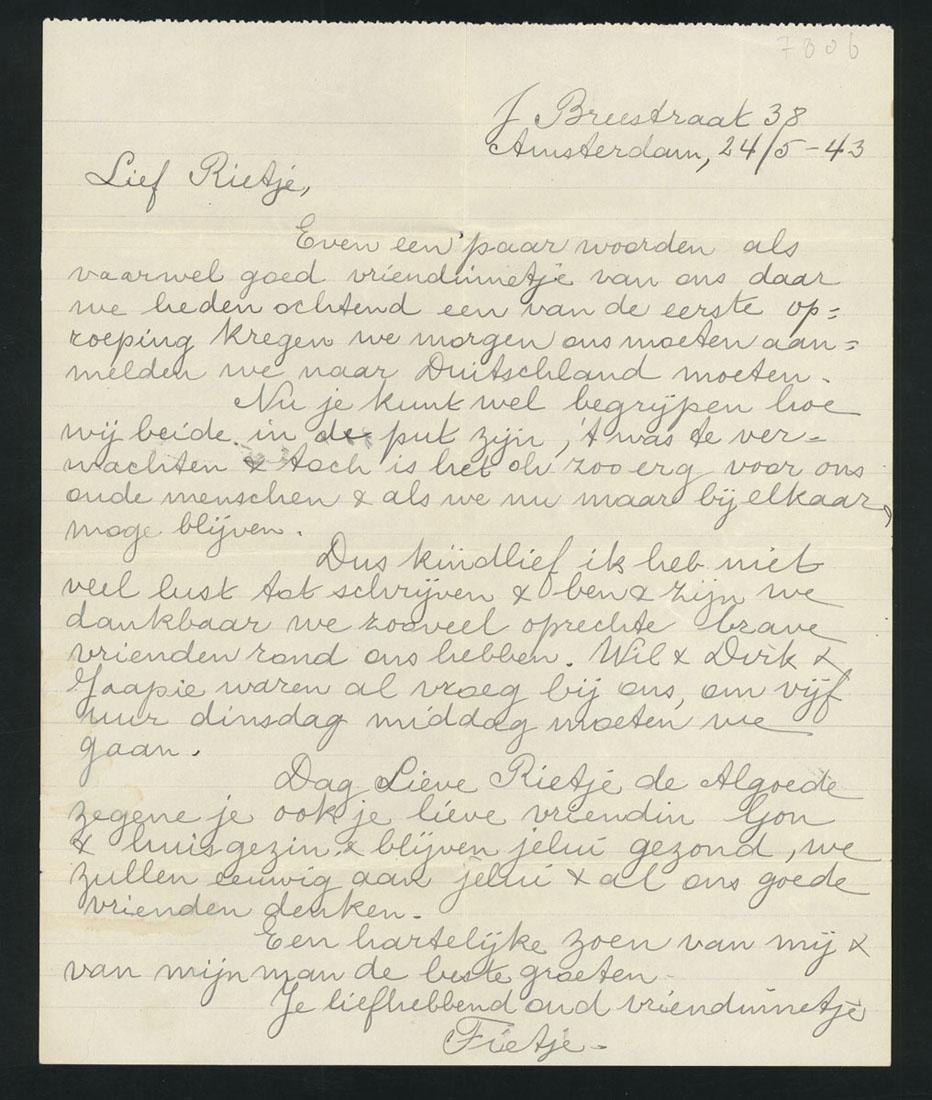 7806
J Breestraat 38
Amsterdam, 24/5-43
Lief Rietje,
Even een paar woorden als
vaarwel goed vriendinnetje van ons daar
we heden ochtend een van de eerste op=
roeping kregen we morgen ons moeten aan=
melden we naar Duitschland moeten.
Nu je kunt wel begrijpen hoe
wij beide in de put zijn, 't was te ver-
wachten & toch is het oh zoo erg voor ons
oude menschen & als we nu maar bij elkaar
moge blijven.
Dus kindlief ik heb niet
veel lust tot schrijven & ben & zijn we
dankbaar we zooveel oprechte brave
vrienden rond ons hebben. Wil & Dirk &
Jaapie waren al vroeg bij ons, om vijf
uur dinsdag middag moeten we
gaan.
Dag Lieve Rietje de Algoede
zegene je ook je lieve vriendin Gon
& huisgezin & blijven jelui gezond, we
zullen eeuwig aan jelui & al ons goede
vrienden denken.
Een hartelijke zoen van mij &
van mijn man de beste groeten
Je liefhebbend oud vriendinnetje
Fietje.